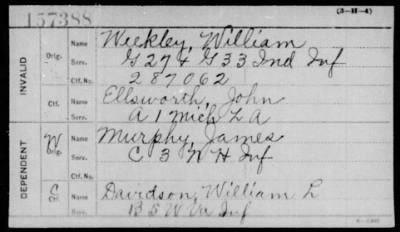 157388
(3-H-4)
INVALID
Orig. Name Weekley, William
Serv. G 27 & G 33 Ind Inf
Ctf. No. 287062
Ctf. Name Ellsworth, John
Serv. A 1 Mich L A
DEPENDENT
W Orig. Name Murphy, James
Serv. C 3 N H Inf
C Ctf. Name Davidson, William L
Serv. B 5 W Va Inf